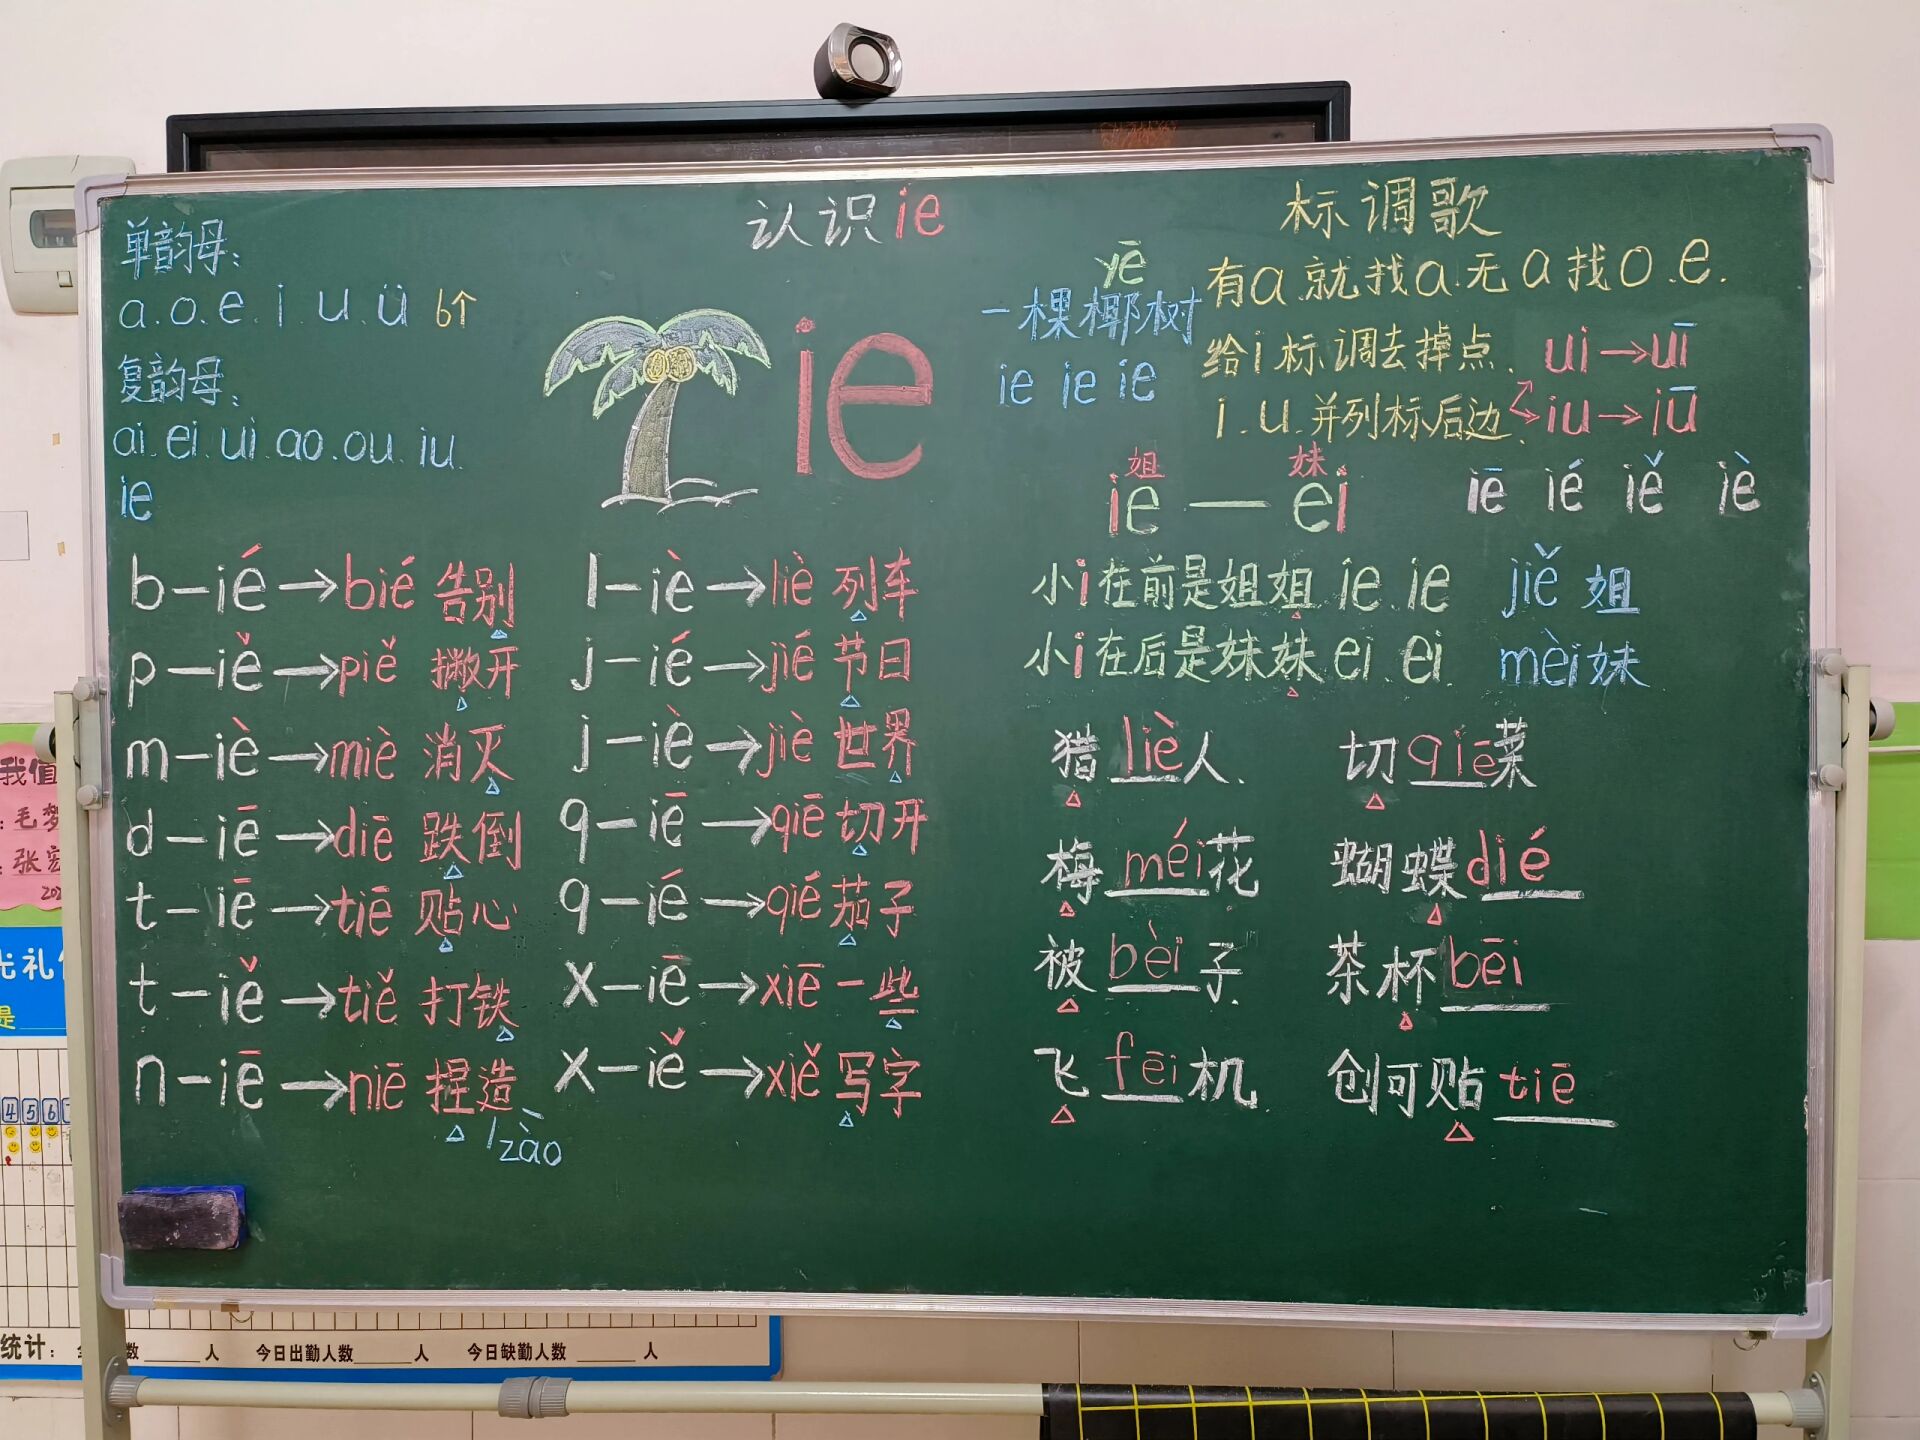 认识ie
单韵母:
a.o.e.i.u.ü 6个
复韵母:
ai.ei.ui.ao.ou.iu.
ie
ie
yē
一棵椰树
ie ie ie
标调歌
有a就找a.无a找o.e.
给i标调去掉点.
i.u.并列标后边.
ui→uī
iu→iū
姐 妹
ie — ei
iē ié iě iè
小i在前是姐姐ie.ie
jiě 姐
小i在后是妹妹ei.ei.
mèi妹
b-ié→bié 告别
p-iě→piě 撇开
m-iè→miè 消灭
d-iē→diē 跌倒
t-iē→tiē 贴心
t-iě→tiě 打铁
n-iē→niē 捏造
zào
l-iè→liè 列车
j-ié→jié 节日
j-iè→jiè 世界
q-iē→qiē 切开
q-ié→qié 茄子
x-iē→xiē 一些
x-iě→xiě 写字
猎 liè 人. 切 qiē 菜
梅 méi 花 蝴蝶 dié
被 bèi 子. 茶杯 bēi
飞 fēi 机. 创可贴 tiē
我值
毛梦
张
礼
是
4 5 6
统计: 数____人 今日出勤人数____人 今日缺勤人数____人